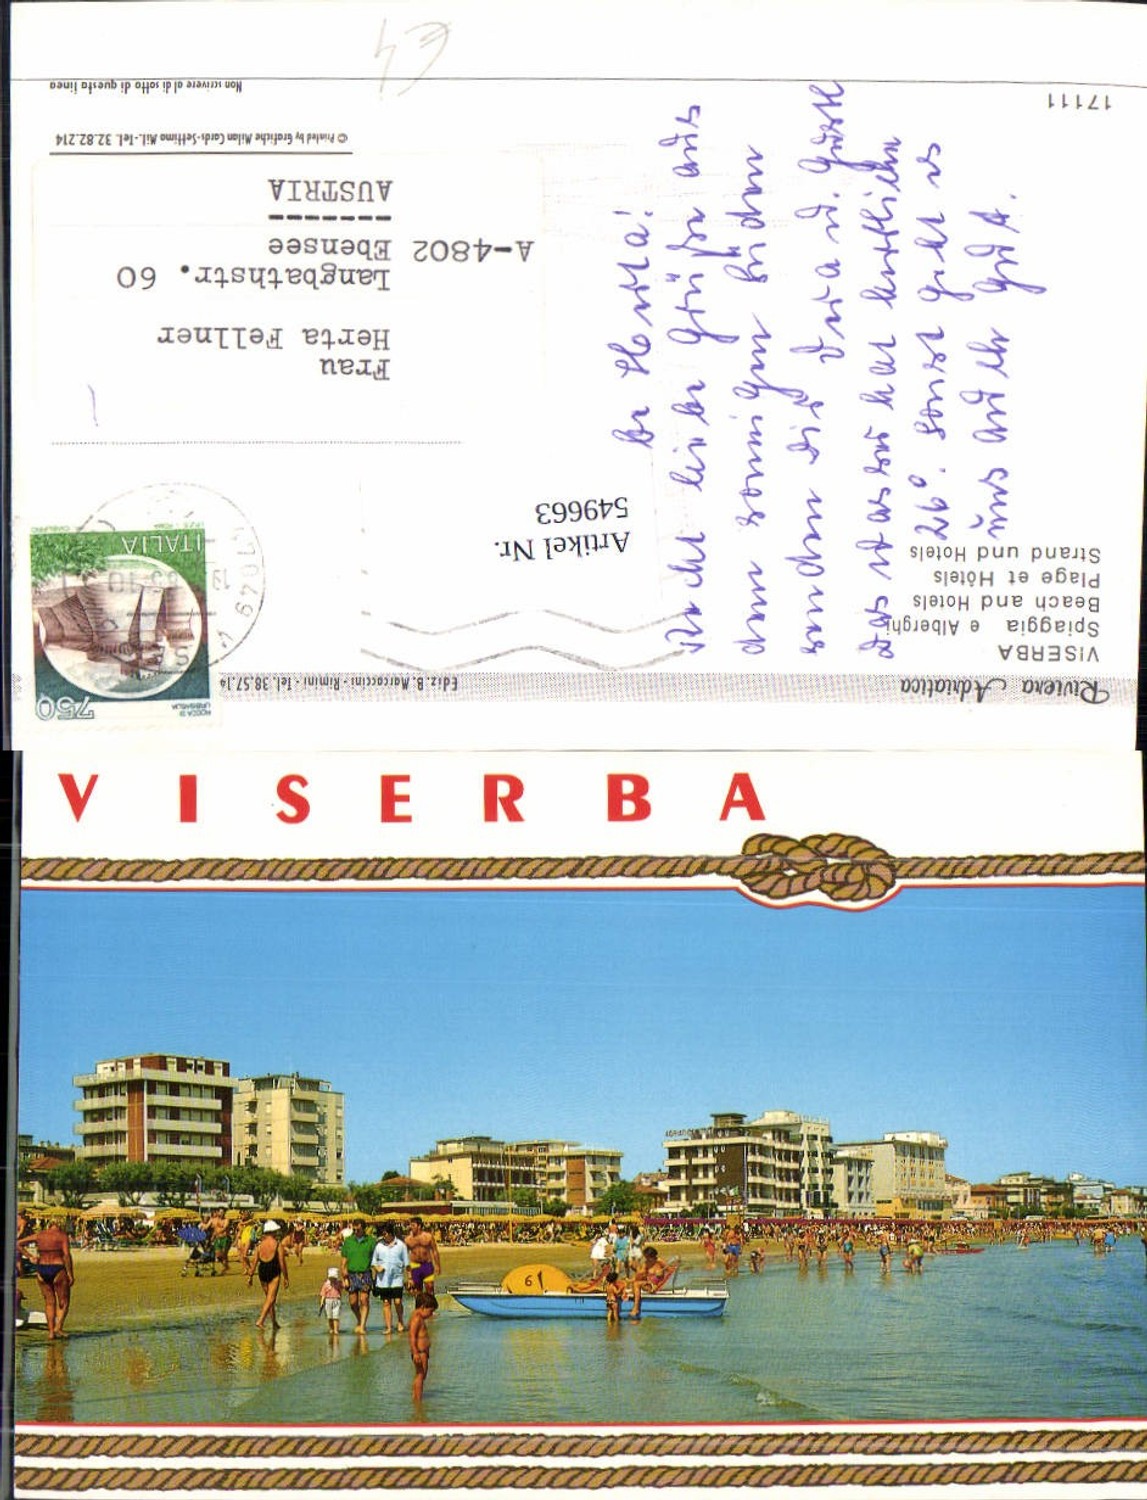 Riviera Adriatica
VISERBA
Spiaggia e Alberghi
Beach and Hotels
Plage et Hôtels
Strand und Hotels
17111
Ediz. B. Marcaccini - Rimini - Tel. 38.57.14
750
ROCCA DI
URBISAGLIA
ITALIA
I.P.Z.S. - ROMA
Artikel Nr.
549663
Herta!
liebe Grüße aus
dem sonnigen Süden
senden dir
das Wasser hat herrliche
26°. Sonst geht es
uns auch gut.
Frau
Herta Fellner
Langbathstr. 60
A-4802 Ebensee
AUSTRIA
© Printed by Grafiche Milan Cards-Settimo Mil. - Tel. 32.82.214
Non scrivere al di sotto di questa linea
VISERBA
6